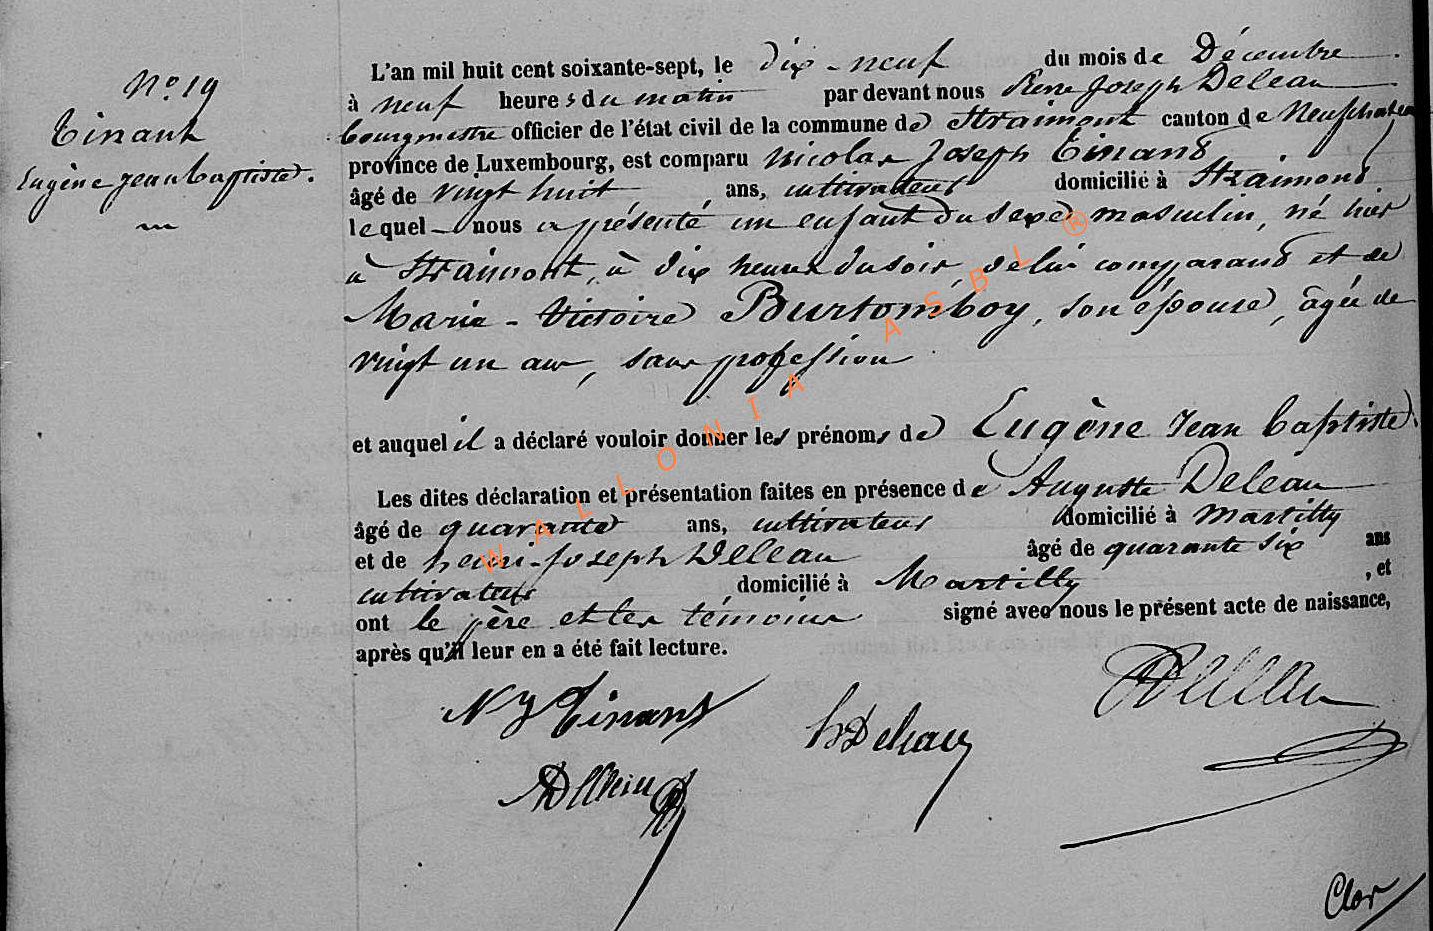 No 19
Tinant
Eugène Jean baptiste.
L'an mil huit cent soixante-sept, le dix-neuf du mois de Décembre
à neuf heures du matin par devant nous Pierre Joseph Deleau
bourgmestre officier de l'état civil de la commune de Straimont canton de Neufchateau
province de Luxembourg, est comparu Nicolas Joseph Tinant
âgé de vingt huit ans, cultivateur domicilié à Straimont
lequel nous a présenté un enfant du sexe masculin, né hier
à Straimont, à dix heures du soir de lui comparant et de
Marie-Victoire Burtomboy, son épouse, âgée de
vingt un ans, sans profession
et auquel il a déclaré vouloir donner les prénoms de Eugène Jean baptiste.
Les dites déclaration et présentation faites en présence de Auguste Deleau
âgé de quarante ans, cultivateur domicilié à Martilly
et de henri-Joseph Deleau âgé de quarante six ans
cultivateur domicilié à Martilly, et
ont le père et les témoins signé avec nous le présent acte de naissance,
après qu'il leur en a été fait lecture.
NJ Tinant
hDeleau
PDeleau
ADeleau
Clos
WALLONIA ASBL ®